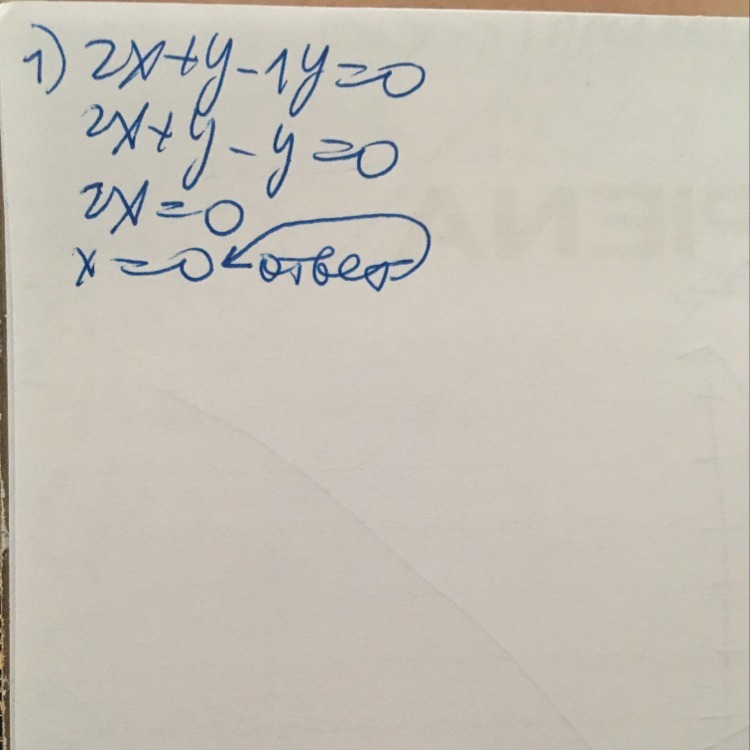 1) 2x+y-1y=0
2x+y-y=0
2x=0
x=0 ← ответ